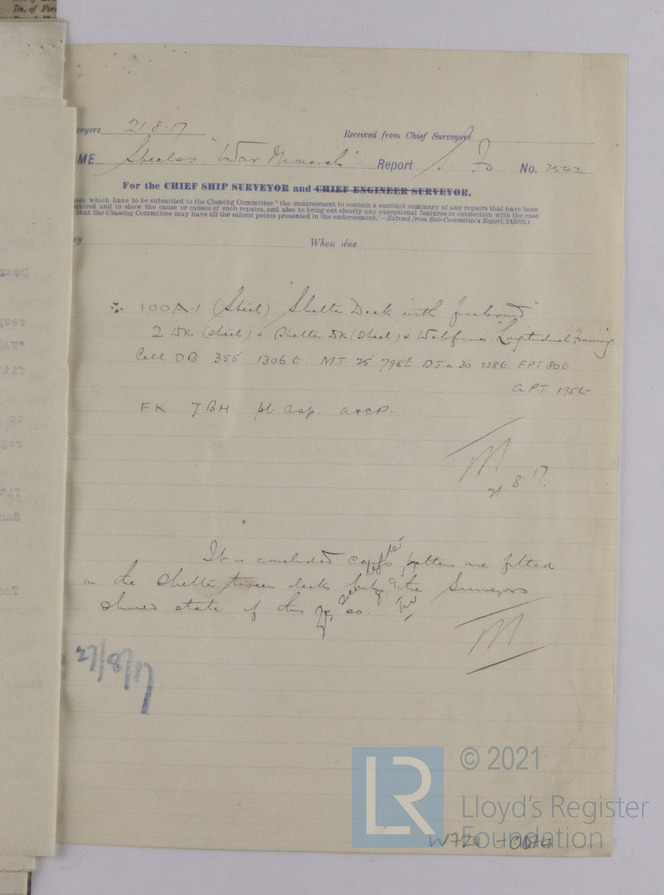 Do. of For
veyors 21.8.17 Received from Chief Surveyors
ME Steel ss "War Monarch" Report No. 7522
For the CHIEF SHIP SURVEYOR and CHIEF ENGINEER SURVEYOR.
ases which have to be submitted to the Classing Committee "the endorsement to contain a succinct summary of any repairs that have been
quired and to show the cause or causes of such repairs, and also to bring out clearly any exceptional features in connection with the case
that the Classing Committee may have all the salient points presented in the endorsement."—Extract from Sub-Committee's Report, 24/5/02.)
When due
100A.1 (Steel) "Shelter Deck with freeboard"
2 Dks (Steel) & Shelter Dk (Steel) & Webframes "Longitudinal Framing
Cell DB 355' 1306t MT 25' 798t DTa 30' 228t FPT 80t
APT 195t
FK 7BH pt asp. a&cp.
M
21 8 17.
It is concluded battens are fitted
in the Shelter tween decks the Surveyors
state if this is so.
M
27/8/17
© 2021
LR
Lloyd's Register
Foundation
W720 - 0074